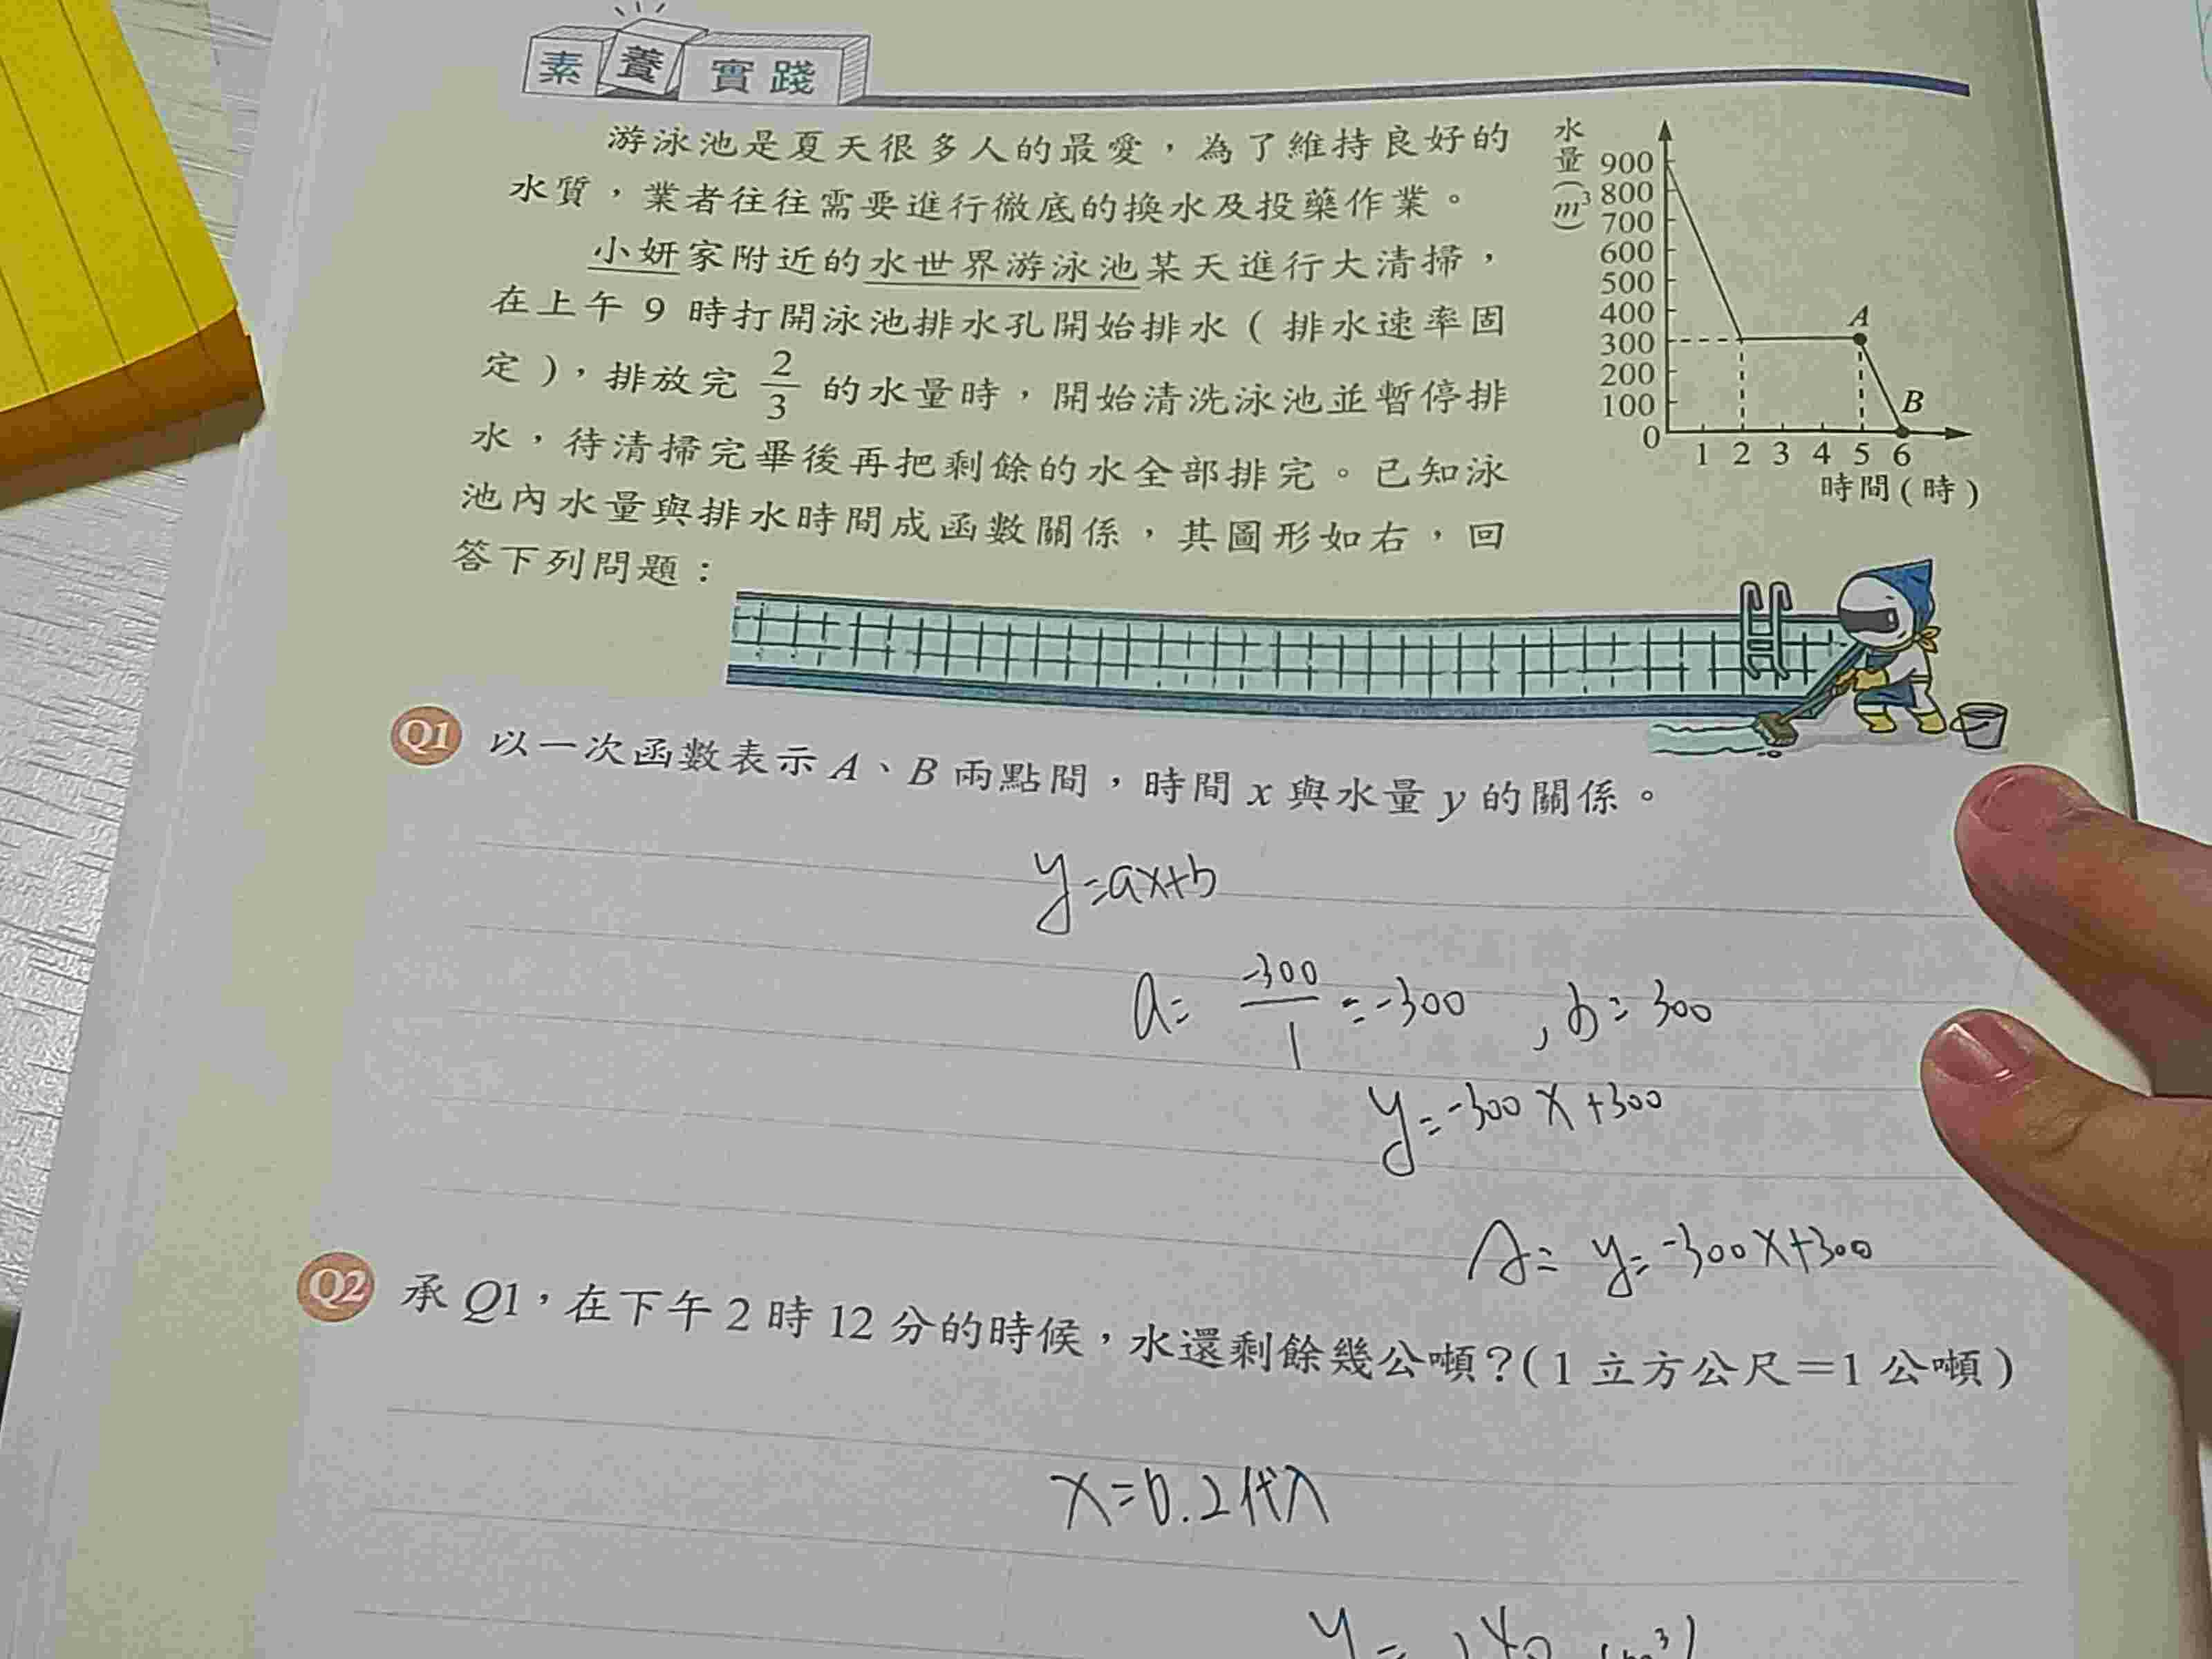 素養實踐
游泳池是夏天很多人的最愛，為了維持良好的
水質，業者往往需要進行徹底的換水及投藥作業。
小妍家附近的水世界游泳池某天進行大清掃，
在上午 9 時打開泳池排水孔開始排水（排水速率固
定），排放完 2/3 的水量時，開始清洗泳池並暫停排
水，待清掃完畢後再把剩餘的水全部排完。已知泳
池內水量與排水時間成函數關係，其圖形如右，回
答下列問題：
水量(m³)
900
800
700
600
500
400
300
200
100
0
A
B
1 2 3 4 5 6
時間(時)
Q1 以一次函數表示 A、B 兩點間，時間 x 與水量 y 的關係。
y=ax+b
a= -300/1 = -300 , b= 300
y= -300x+300
A= y= -300x+300
Q2 承 Q1，在下午 2 時 12 分的時候，水還剩餘幾公噸？(1 立方公尺＝1 公噸)
x=0.2代入
y=